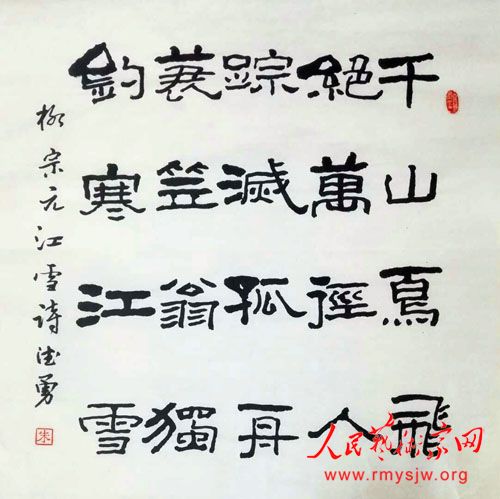 千山鳥飛
絕萬徑人
踪滅孤舟
蓑笠翁獨
釣寒江雪
柳宗元江雪诗德勇
朱
人民藝術家网
www.rmysjw.org